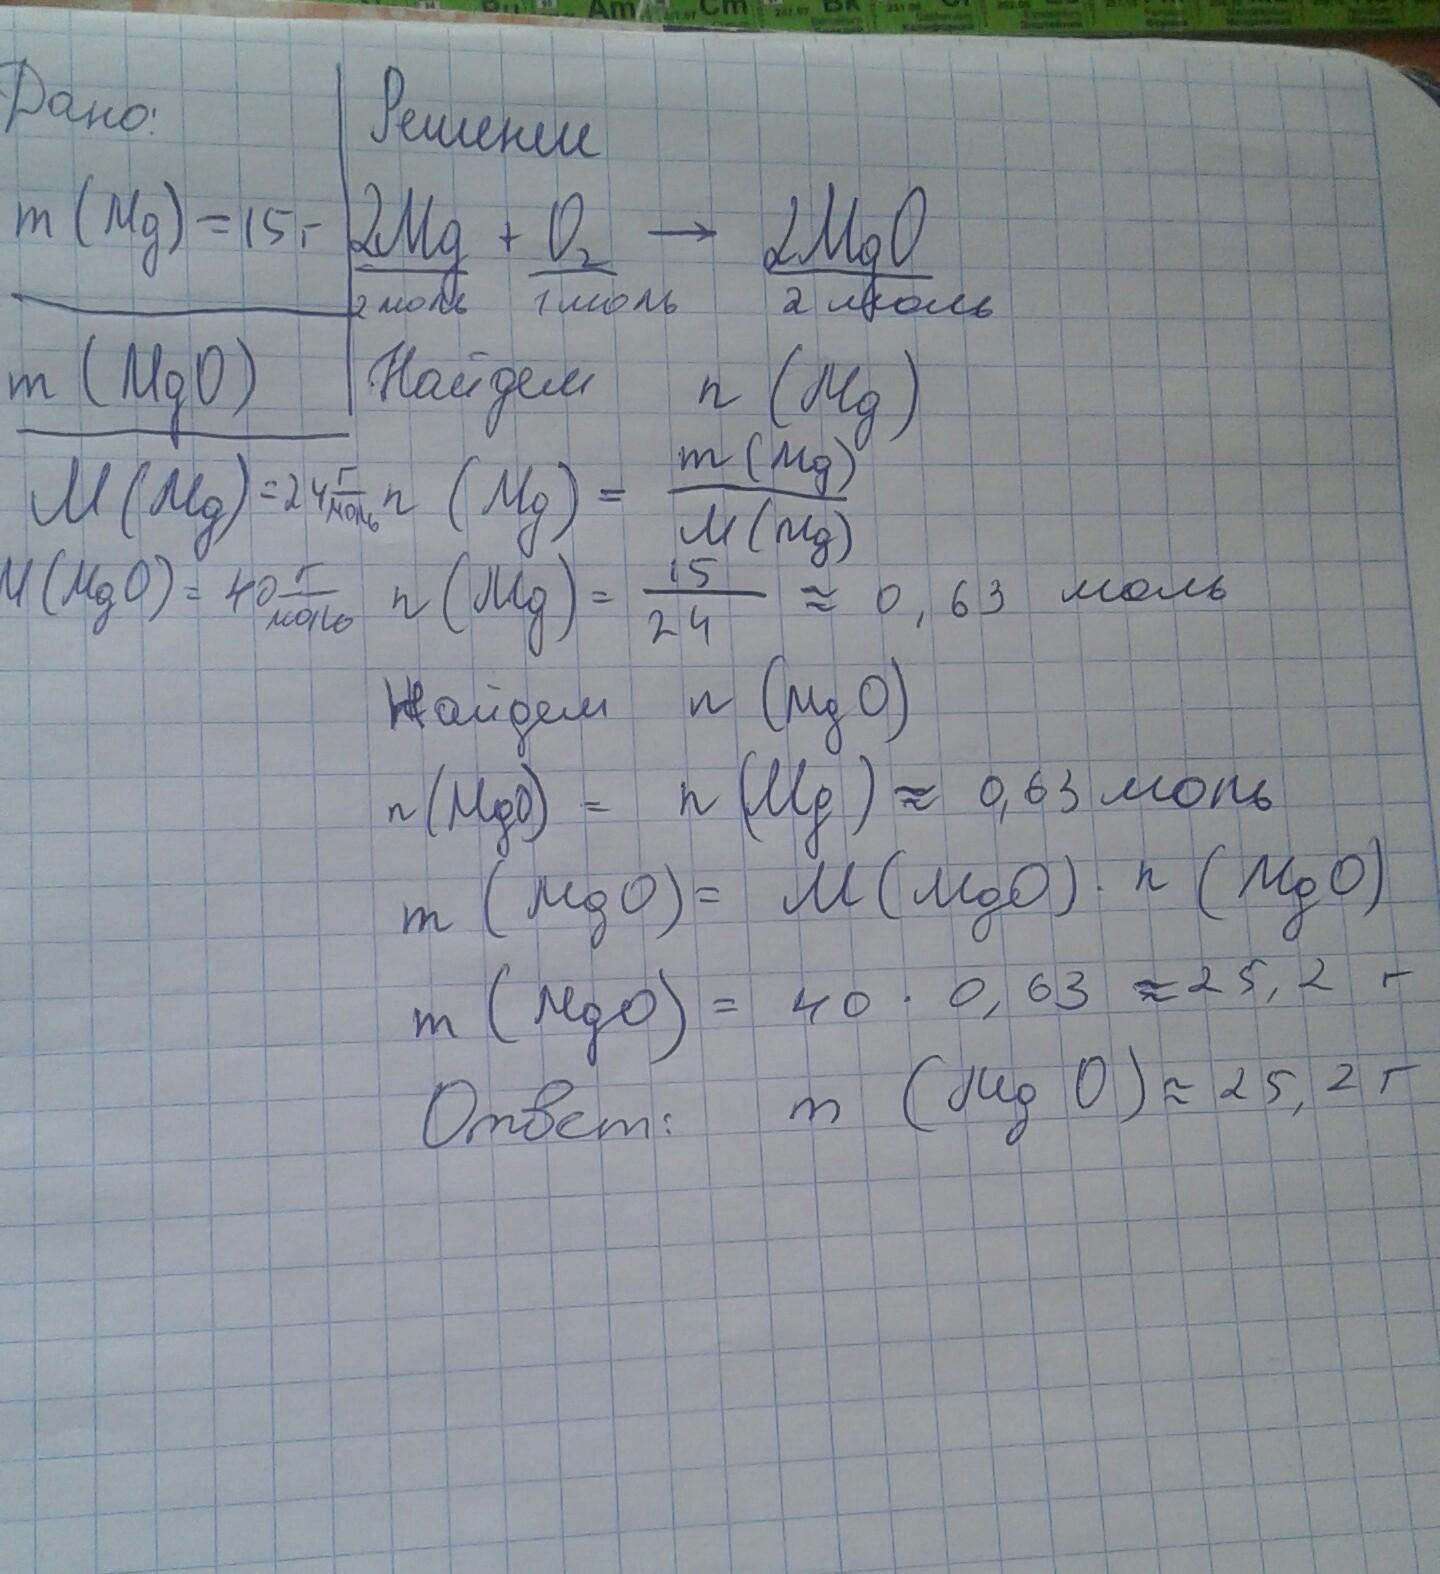 Am Cm Bk
Дано:
Решение
m (Mg) = 15 г
2Mg + O₂ → 2MgO
2 моль 1 моль 2 моль
m (MgO)
Найдем n (Mg)
M (Mg) = 24 г/моль
n (Mg) = m (Mg) / M (Mg)
M (MgO) = 40 г/моль
n (Mg) = 15 / 24 ≈ 0,63 моль
Найдем n (MgO)
n (MgO) = n (Mg) ≈ 0,63 моль
m (MgO) = M (MgO) · n (MgO)
m (MgO) = 40 · 0,63 ≈ 25,2 г
Ответ: m (MgO) ≈ 25,2 г